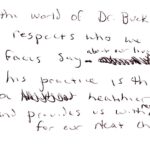 the world of Dr. Buck
respects who we
Focus Say - about our liv
his practice is th
a healthier
and provides us with
for our next ch